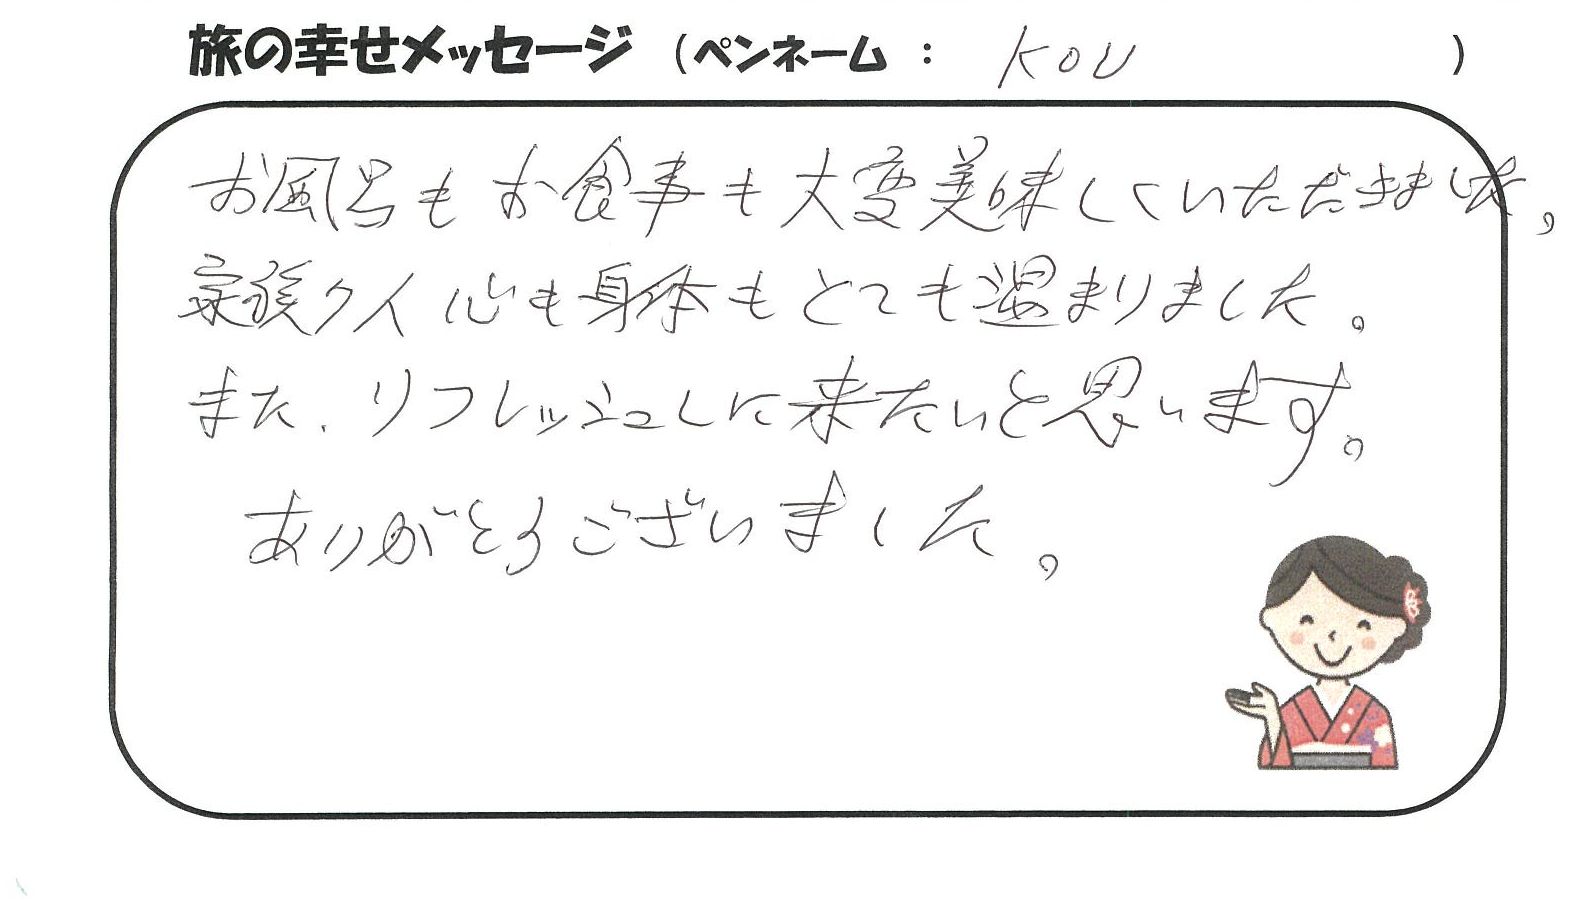 旅の幸せメッセージ (ペンネーム : KOU )
お風呂もお食事も大変美味しくいただきました。
家族9人 心も身体もとても温まりました。
また、リフレッシュしに来たいと思います。
ありがとうございました。